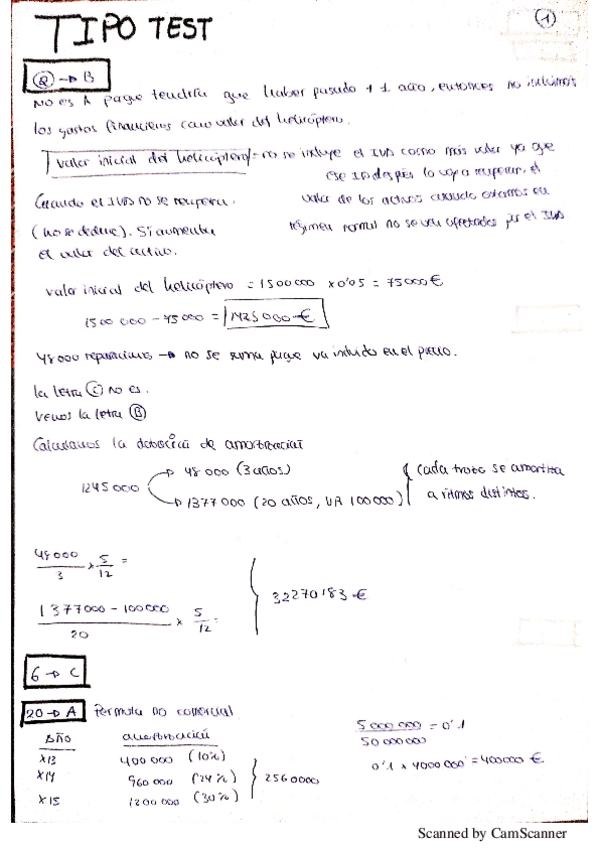 TIPO TEST
1
2 → B
NO es A porque tendría que haber pasado + 1 año, entonces no incluimos
los gastos financieros como valor del helicóptero.
valor inicial del helicóptero = no se incluye el IVA como más valor ya que
ese IVA después lo voy a recuperar, el
valor de los activos cuando estamos en
régimen normal no se ven afectados por el IVA
Cuando el IVA no se recupera.
(no se deduce). Sí aumenta
el valor del activo.
valor inicial del helicóptero = 1500000 x 0'05 = 75000€
1500 000 - 75000 = 1425000 €
48000 reparaciones → no se suma porque va incluido en el precio.
la letra C no es.
Vemos la letra B
Calculamos la dotación de amortización
1245000
48 000 (3 años)
1377000 (20 años, VR 100000)
Cada trozo se amortiza
a ritmos distintos.
48000 / 3 x 5/12 =
1377000 - 100000 / 20 x 5/12 =
32270'83 €
6 → C
20 → A Permuta no comercial
AÑO amortización
X13 400 000 (10%)
X14 960 000 (24%)
X15 1200 000 (30%)
2560000
5 000 000 / 50 000000 = 0'1
0'1 x 4000000 = 400000 €
Scanned by CamScanner